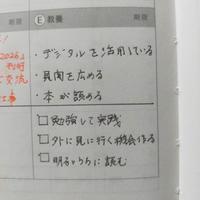 期限 E 教養 期限
2026
・デジタルを活用している
・見聞を広める
・本が読める
□ 勉強して実践
□ 外に見に行く機会作る
□ 明るいうちに読む